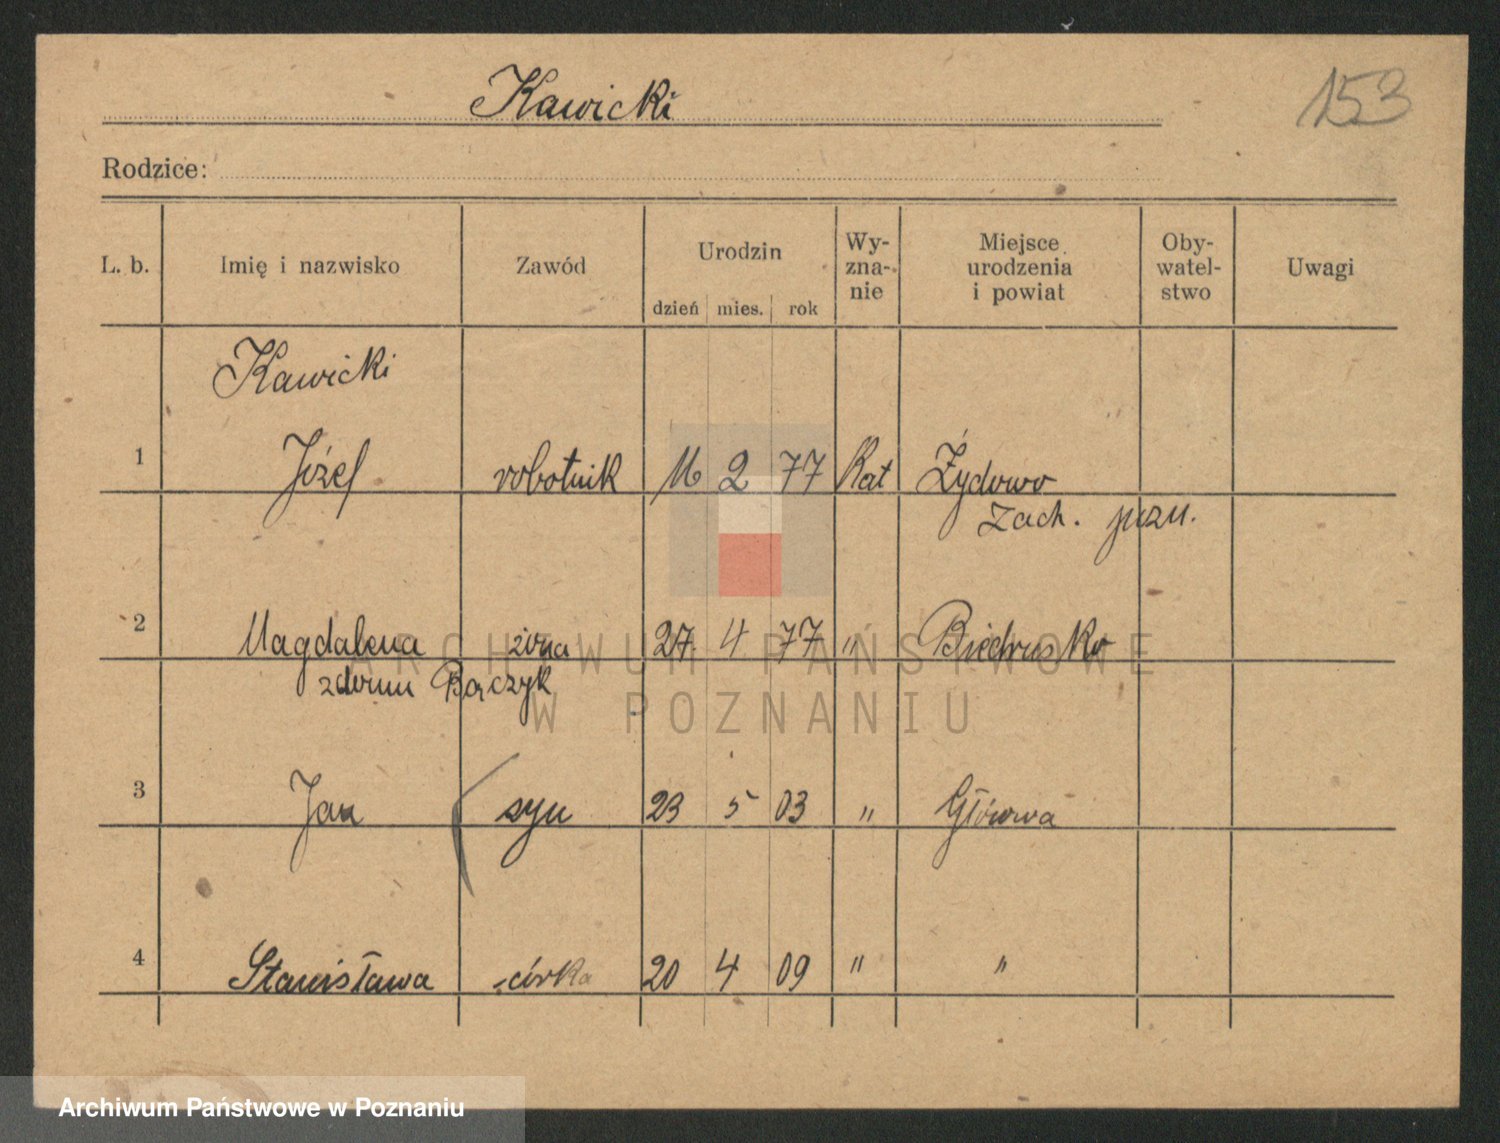 Kawicki
153
Rodzice:
L. b. Imię i nazwisko Zawód Urodzin dzień mies. rok Wy-zna-nie Miejsce urodzenia i powiat Oby-watel-stwo Uwagi
Kawicki
1 Józef robotnik 2 77 Kat Żydowo
zach. pozn.
2 Magdalena żona 27. 4 77 " Biedrusko
zdomu Bączyk
3 Jan syn 23 5 03 " Główna
4 Stanisława córka 20 4 09 " "
ARCHIWUM PAŃSTWOWE
W POZNANIU
Archiwum Państwowe w Poznaniu